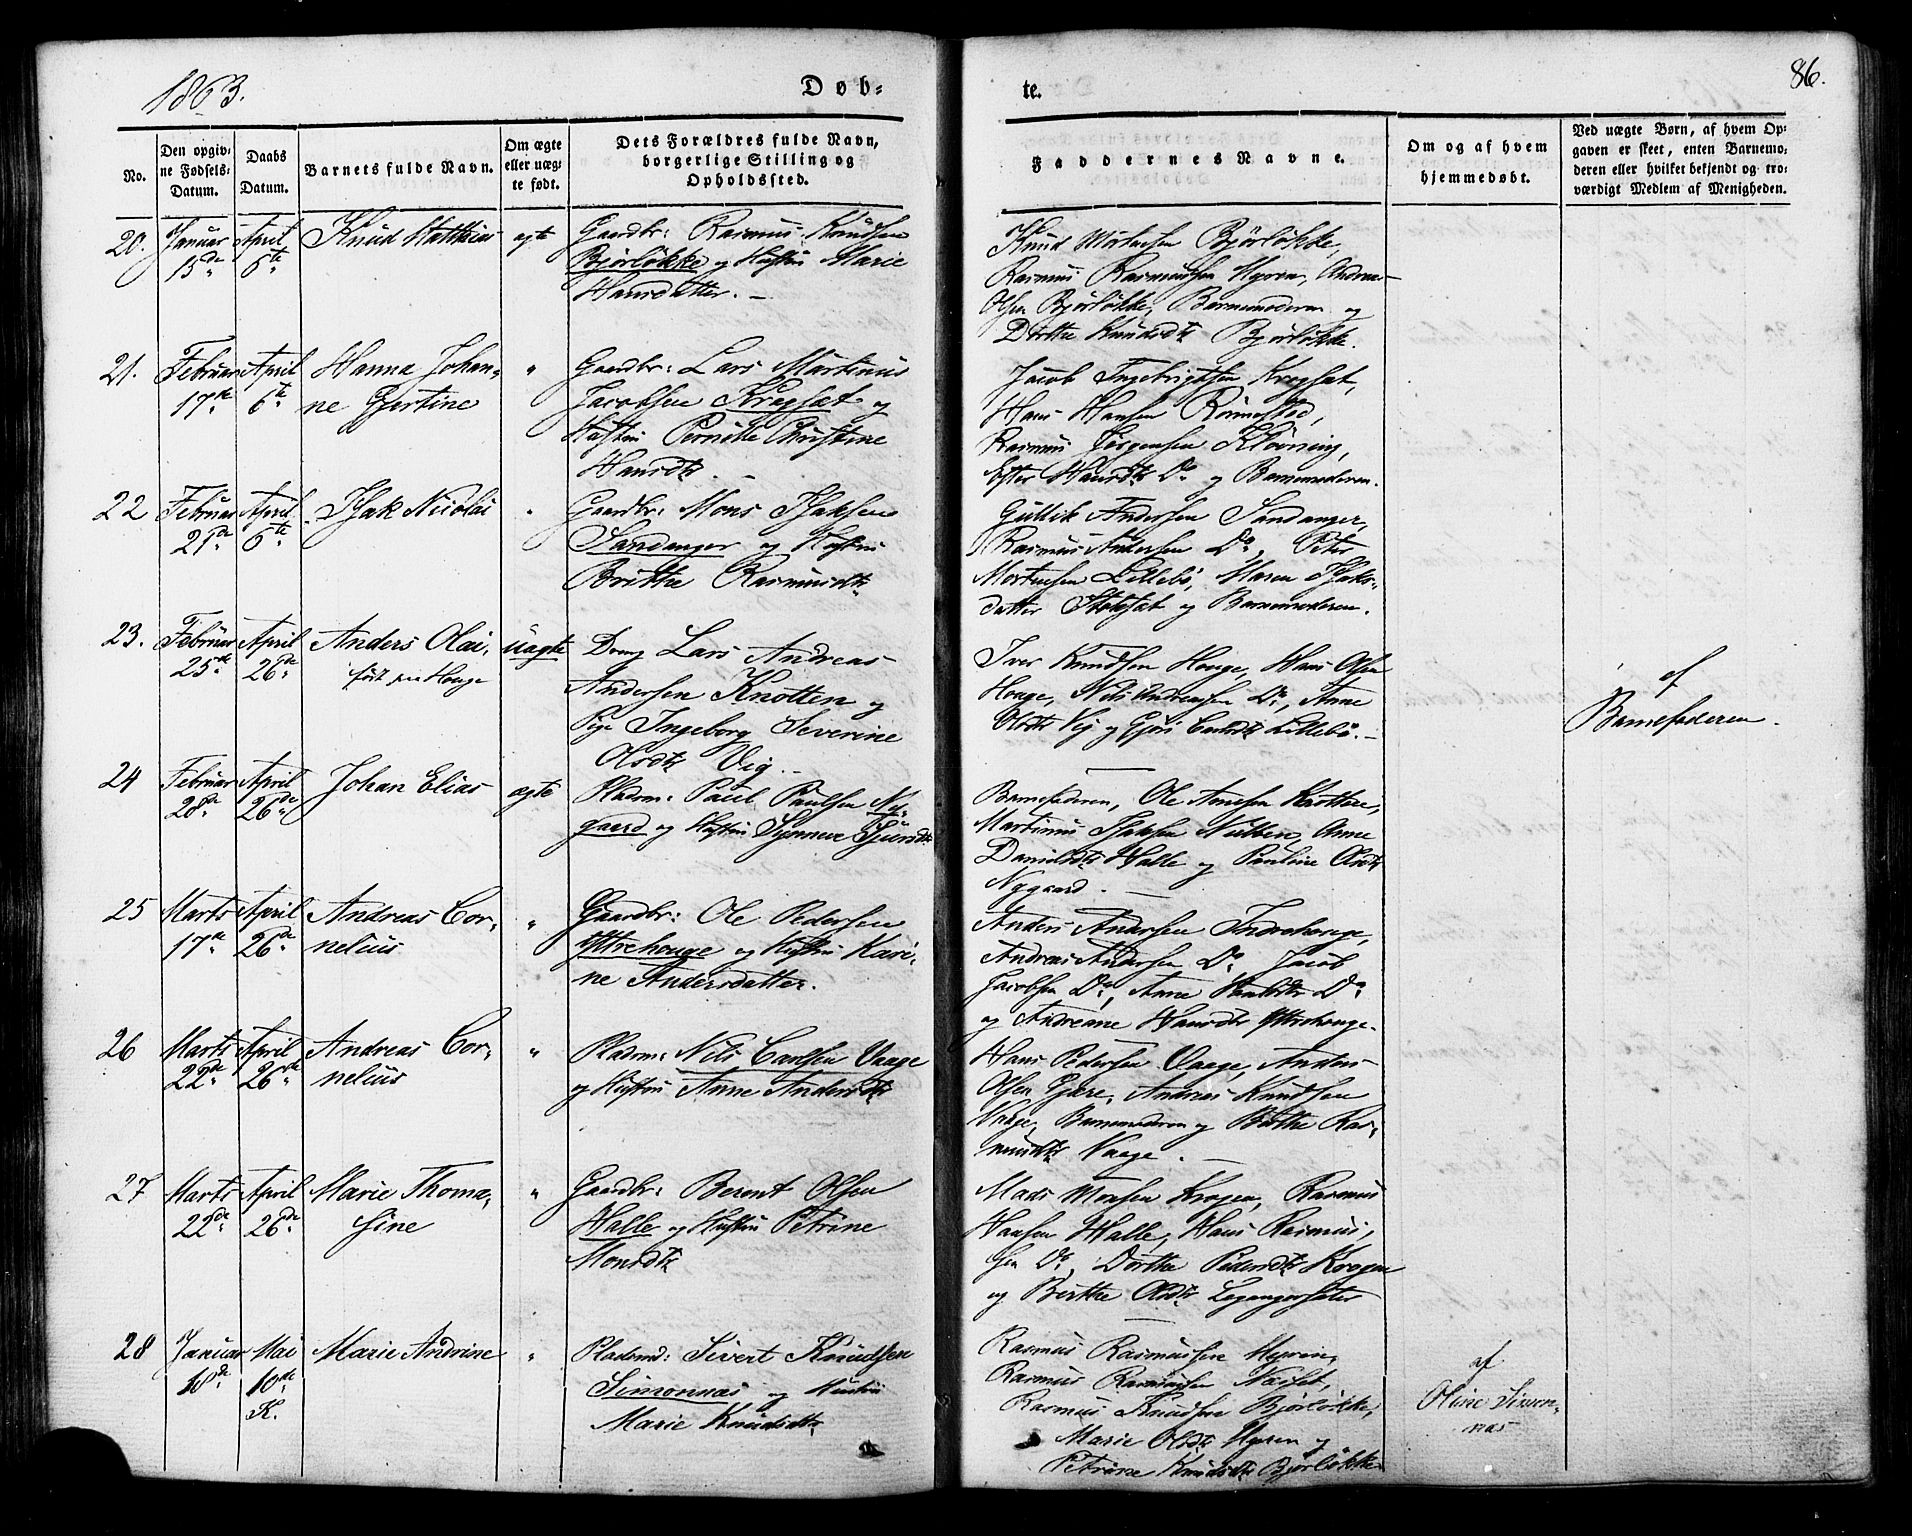 1863.
Døb-
te.
86.
No.
Den opgiv-
ne Fødsels-
Datum.
Daabs
Datum.
Barnets fulde Navn.
Om ægte
eller uæg-
te født.
Dets Forældres fulde Navn,
borgerlige Stilling og
Opholdssted.
Faddernes Navne.
Om og af hvem
hjemmedøbt.
Ved uægte Børn, af hvem Op-
gaven er skeet, enten Barnemo-
deren eller hvilket bekjendt og tro-
værdigt Medlem af Menigheden.
20. Januar April Knud Matthias ægte Gaardbr: Rasmus Knudsen
15de 6te Bjørløkke og Hustru Marie
Hansdatter.
Knud Mortensen Bjørløkke,
Rasmus Rasmussen Myren, Andreas
Olsen Bjørløkke, Barnemoderen og
Dorthe Knudsdtr Bjørløkke.
21. Februar April Hanna Johan- " Gaardbr: Lars Martinus
17de 6te ne Gjertine Jacobsen Krogsæt og
Hustru Pernille Christine
Hansdtr
Jacob Ingebrigtsen Krogsæt,
Hans Hansen
Rasmus Jørgensen Kløvning,
Hansdtr Do og Barnemoderen.
22 Februar April Isak Nicolai " Gaardbr: Mons Isaksen
21de 6te Sandanger og Hustru
Brithe Rasmusdtr
Gullik Andersen Sandanger,
Rasmus Andersen Do, Peter
Mortensen Lillebø, Maren Isaks-
datter og Barnemoderen.
23. Februar April Anders Olai, uægte Lars Andreas
25de 26de født paa Houge Andersen Knotten og
Pige Ingeborg Severine
Olsdtr Vig.
Iver Knudsen Houge, Hans Olsen
Houge, Nils Andreassen Do, Anne
Olsdtr Vig og Lillebø.
af
Barnefaderen.
24 Februar April Johan Elias ægte Pladsm: Paul Paulsen Ny-
28de 26de gaard og Hustru Synneve Sjursdtr
Barnefaderen, Ole Knotten,
Martinus Isaksen Anne
Danielsdtr Halle og Pauline Olsdtr
Nygaard.
25 Marts April Andreas Cor- " Gaardbr: Ole Pedersen
17de 26de nelius Yttrehouge og Hustru Kari-
ne Andersdatter.
Anders Andersen Indrehouge,
Andreas Andersen Do Jacob
Jacobsen Do, Anne Do
og Andreane Hansdtr Yttrehouge.
26 Marts April Andreas Cor- " Pladsm: Nils Carlsen Vaage
22de 26de nelius og Hustru Anne Andersdtr
Hans Pedersen Vaage, Anders
Olsen Gjære, Andreas Knudsen
Vaage, Barnemoderen og Birthe Ras-
musdtr Vaage.
27 Marts April Marie Thoma- " Gaardbr: Berent Olsen
22de 26de sine Halle og Hustru Petrine
Monsdtr
Mads Monsen Krogen, Rasmus
Hansen Halle, Hans Rasmus-
sen Do, Dorthe Pedersdtr Krogen
og Berthe Olsdtr Legangersæter
28 Januar Mai Marie Andrine " Pladsmd: Sivert Knudsen
18de 10de Simonnæs og Hustru
K. Marie Knudsdtr
Rasmus Rasmussen Myren,
Rasmus Rasmussen
Rasmus Knudsen Bjørløkke,
Marie Olsdtr Myren og
Petrine Knudsdtr Bjørløkke
af
Oline Simon-
næs